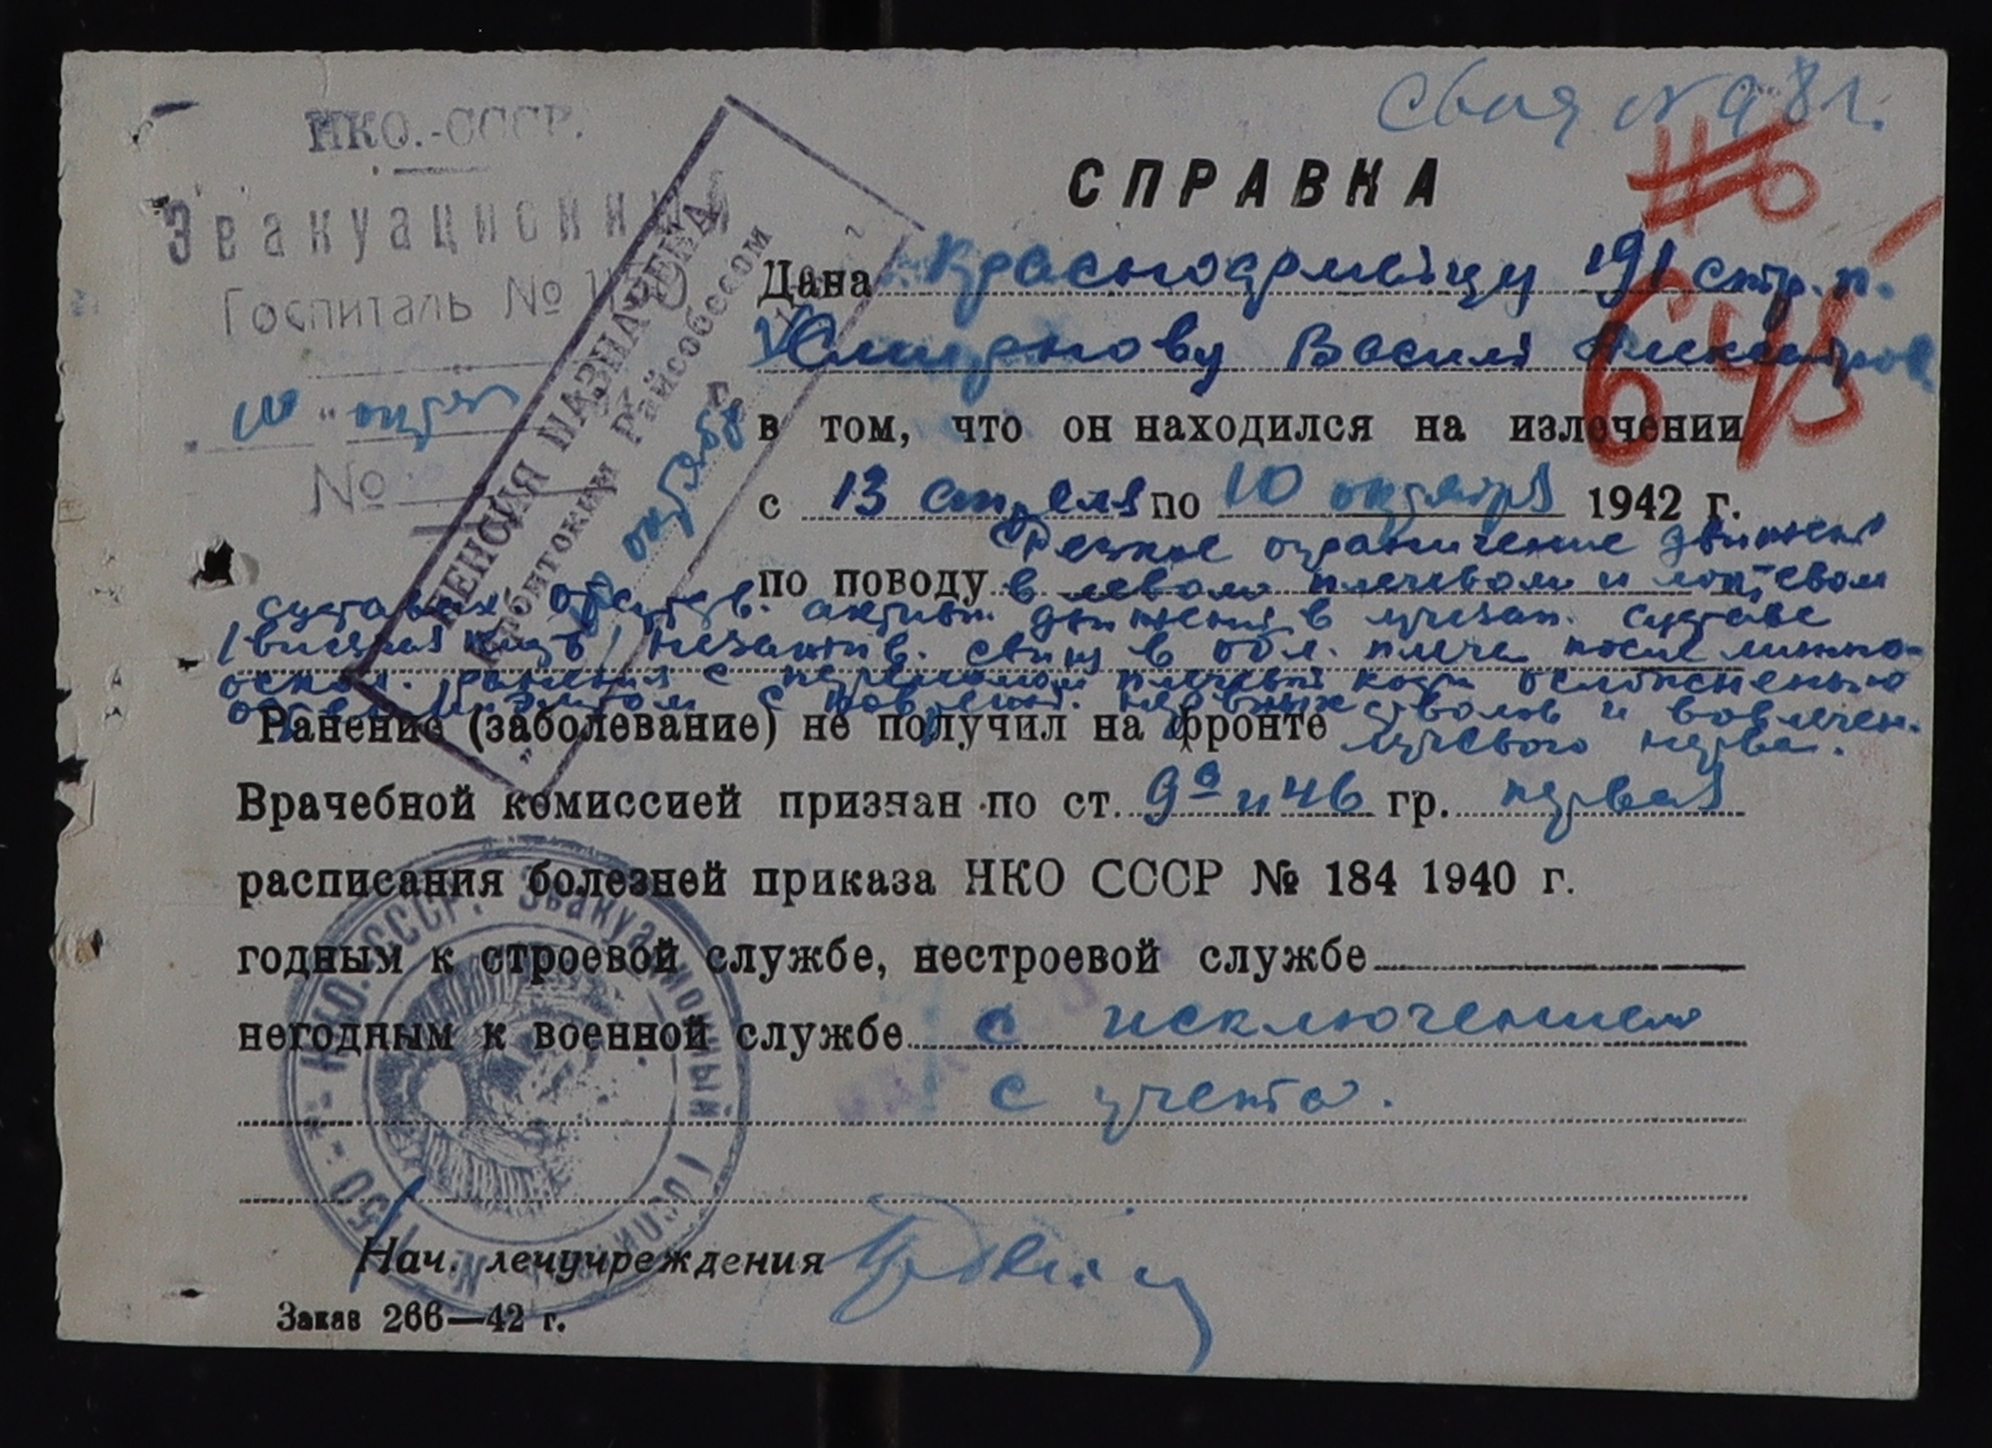 НКО.-СССР.
Эвакуационный
Госпиталь № 1150
"10" октяб
№
ПЕНСИЯ НАЗНАЧЕНА
Райсобесом
10 октября
г.
СПРАВКА
Дана красноармейцу 191 стр. п.
Смирнову Васил
в том, что он находился на излечении
с 13 апреля по 10 октября 1942 г.
Резкое ограничение движен
по поводу в левом плечевом и локтевом
суставах отсутств. активн. движений в лучезап. суставе
/висячая кисть/ незажив. свищ в обл. плеча после
ранения с переломом плечевой кости осложненного
остеомиэлитом с поврежд. нервных стволов и вовлечен.
Ранение (заболевание) не получил на фронте лучевого нерва.
Врачебной комиссией признан по ст. 9а и 46 гр. первая
расписания болезней приказа НКО СССР № 184 1940 г.
годным к строевой службе, нестроевой службе
негодным к военной службе с исключением
с учета.
Н.К.О. СССР. Эвакуационный Госпиталь № 1150
Нач. лечучреждения
Заказ 266—42 г.